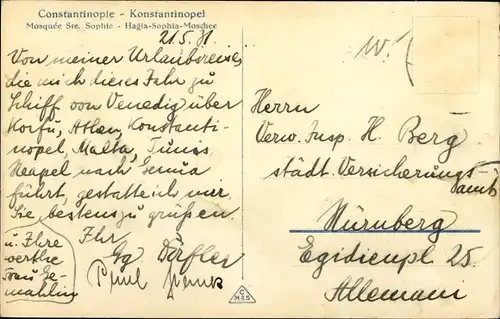 Constantinople - Konstantinopel
Mosquée Ste. Sophie - Hagia-Sophia-Moschee
21.5.31.
Von meiner Urlaubsreise,
die mich dieses Jahr zu
Schiff von Venedig über
Korfu, Athen, Konstanti-
nopel, Malta, Tunis
Neapel nach Genua
führt, gestatte ich mir
Sie bestens zu grüßen
Ihr
Gg. Dörfler
u. Ihre
werthe
Frau Ge-
mahlin
W.
Herrn
Verw. Insp. H. Berg
städt. Versicherungs-
amt
Nürnberg
Egidienpl 25.
Allemani
C
M&S